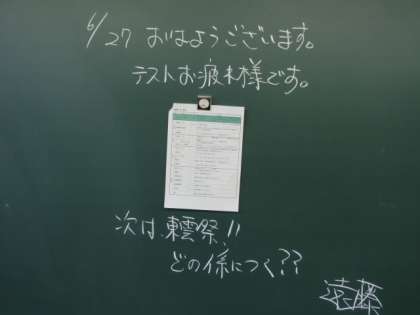 6/27 おはようございます。
テストお疲れ様です。
次は、東雲祭!!
どの係につく??
遠藤